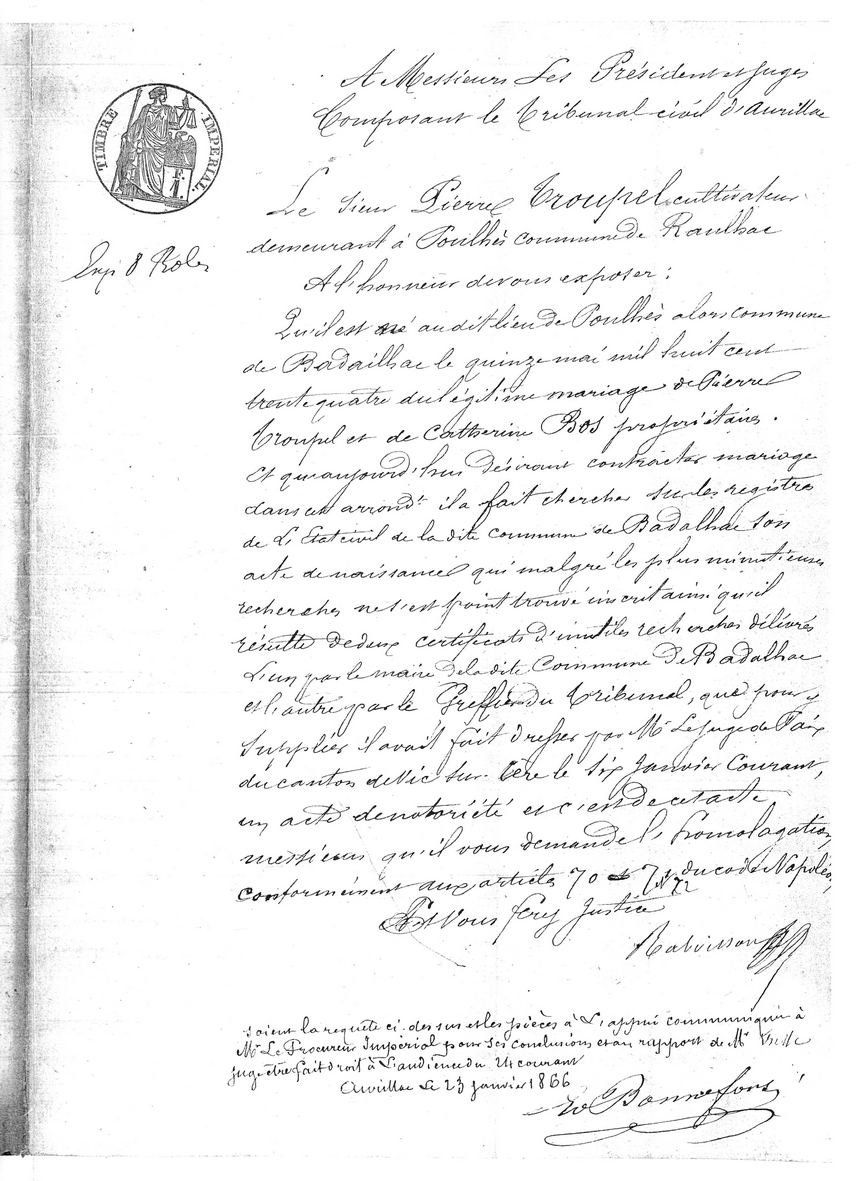 A Messieurs Les Président et Juges
Composant le Tribunal civil d'Aurillac
TIMBRE IMPERIAL
F.
1.
Le Sieur Pierre Troupel cultivateur
demeurant à Poulhès commune de Raulhac
Exp 8 Roles
A l'honneur de vous exposer :
Qu'il est né audit lieu de Poulhès alors commune
de Badailhac le quinze mai mil huit cent
trente quatre du légitime mariage de Pierre
Troupel et de Catherine Bos propriétaires.
Et qu'aujourd'hui désirant contracter mariage
dans cet arrondt. il a fait chercher sur les registres
de L'Etat civil de la dite commune de Badalhac son
acte de naissance qui malgré les plus minutieuses
recherches ne s'est point trouvé inscrit ainsi qu'il
résulte de deux certificats d'inutiles recherches délivrés
L'un par le maire de la dite Commune de Badalhac
et l'autre par le Greffier du Tribunal, que pour y
suppléer il avait fait dresser par Mr Le Juge de Paix
du canton de Vic sur Cère le six Janvier Courant,
un acte de notoriété et c'est de cet acte
messieurs qu'il vous demande l'homologation,
conformément aux articles 70 71 et 72 du code Napoléon,
Et Vous ferez Justice
Soient la requête ci-dessus et les pièces à L'appui communiqué à
Mr Le Procureur Impérial pour ses conclusions et au rapport de Mr
juge être fait droit à L'audience du 24 courant
Aurillac Le 23 janvier 1866
Bonnefons